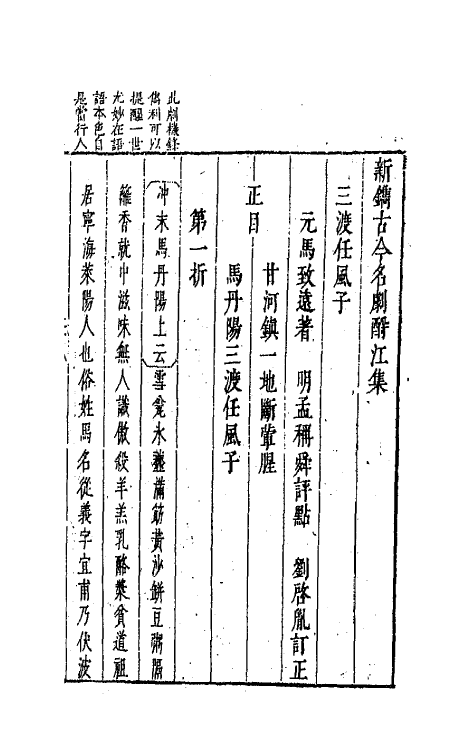 新鐫古今名劇酹江集
三渡任風子
元馬致遠著　明孟稱舜評點　劉啓胤訂正
正目
甘河鎮一地斷葷腥
馬丹陽三渡任風子
第一折
冲末馬丹陽上云雪瓮冰虀滿筯黃沙餅豆粥隔
籬香就中滋味無人識傲殺羊羔乳酪漿貧道祖
居寧海萊陽人也俗姓馬名從義字宜甫乃伏波
此劇機鋒
雋利可以
提醒一世
尤妙在語
語本色自
是當行人